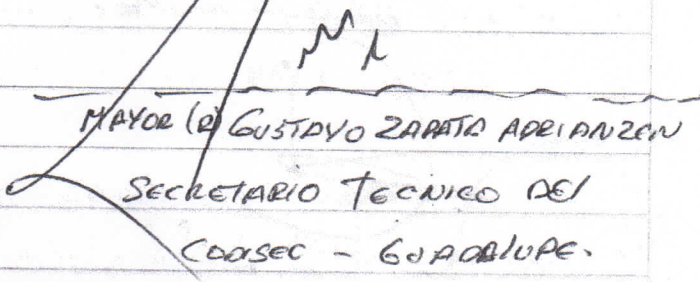 MAYOR (R) GUSTAVO ZAPATA ADRIANZEN
SECRETARIO TECNICO DEl
CODISEC - GUADAlUPE.